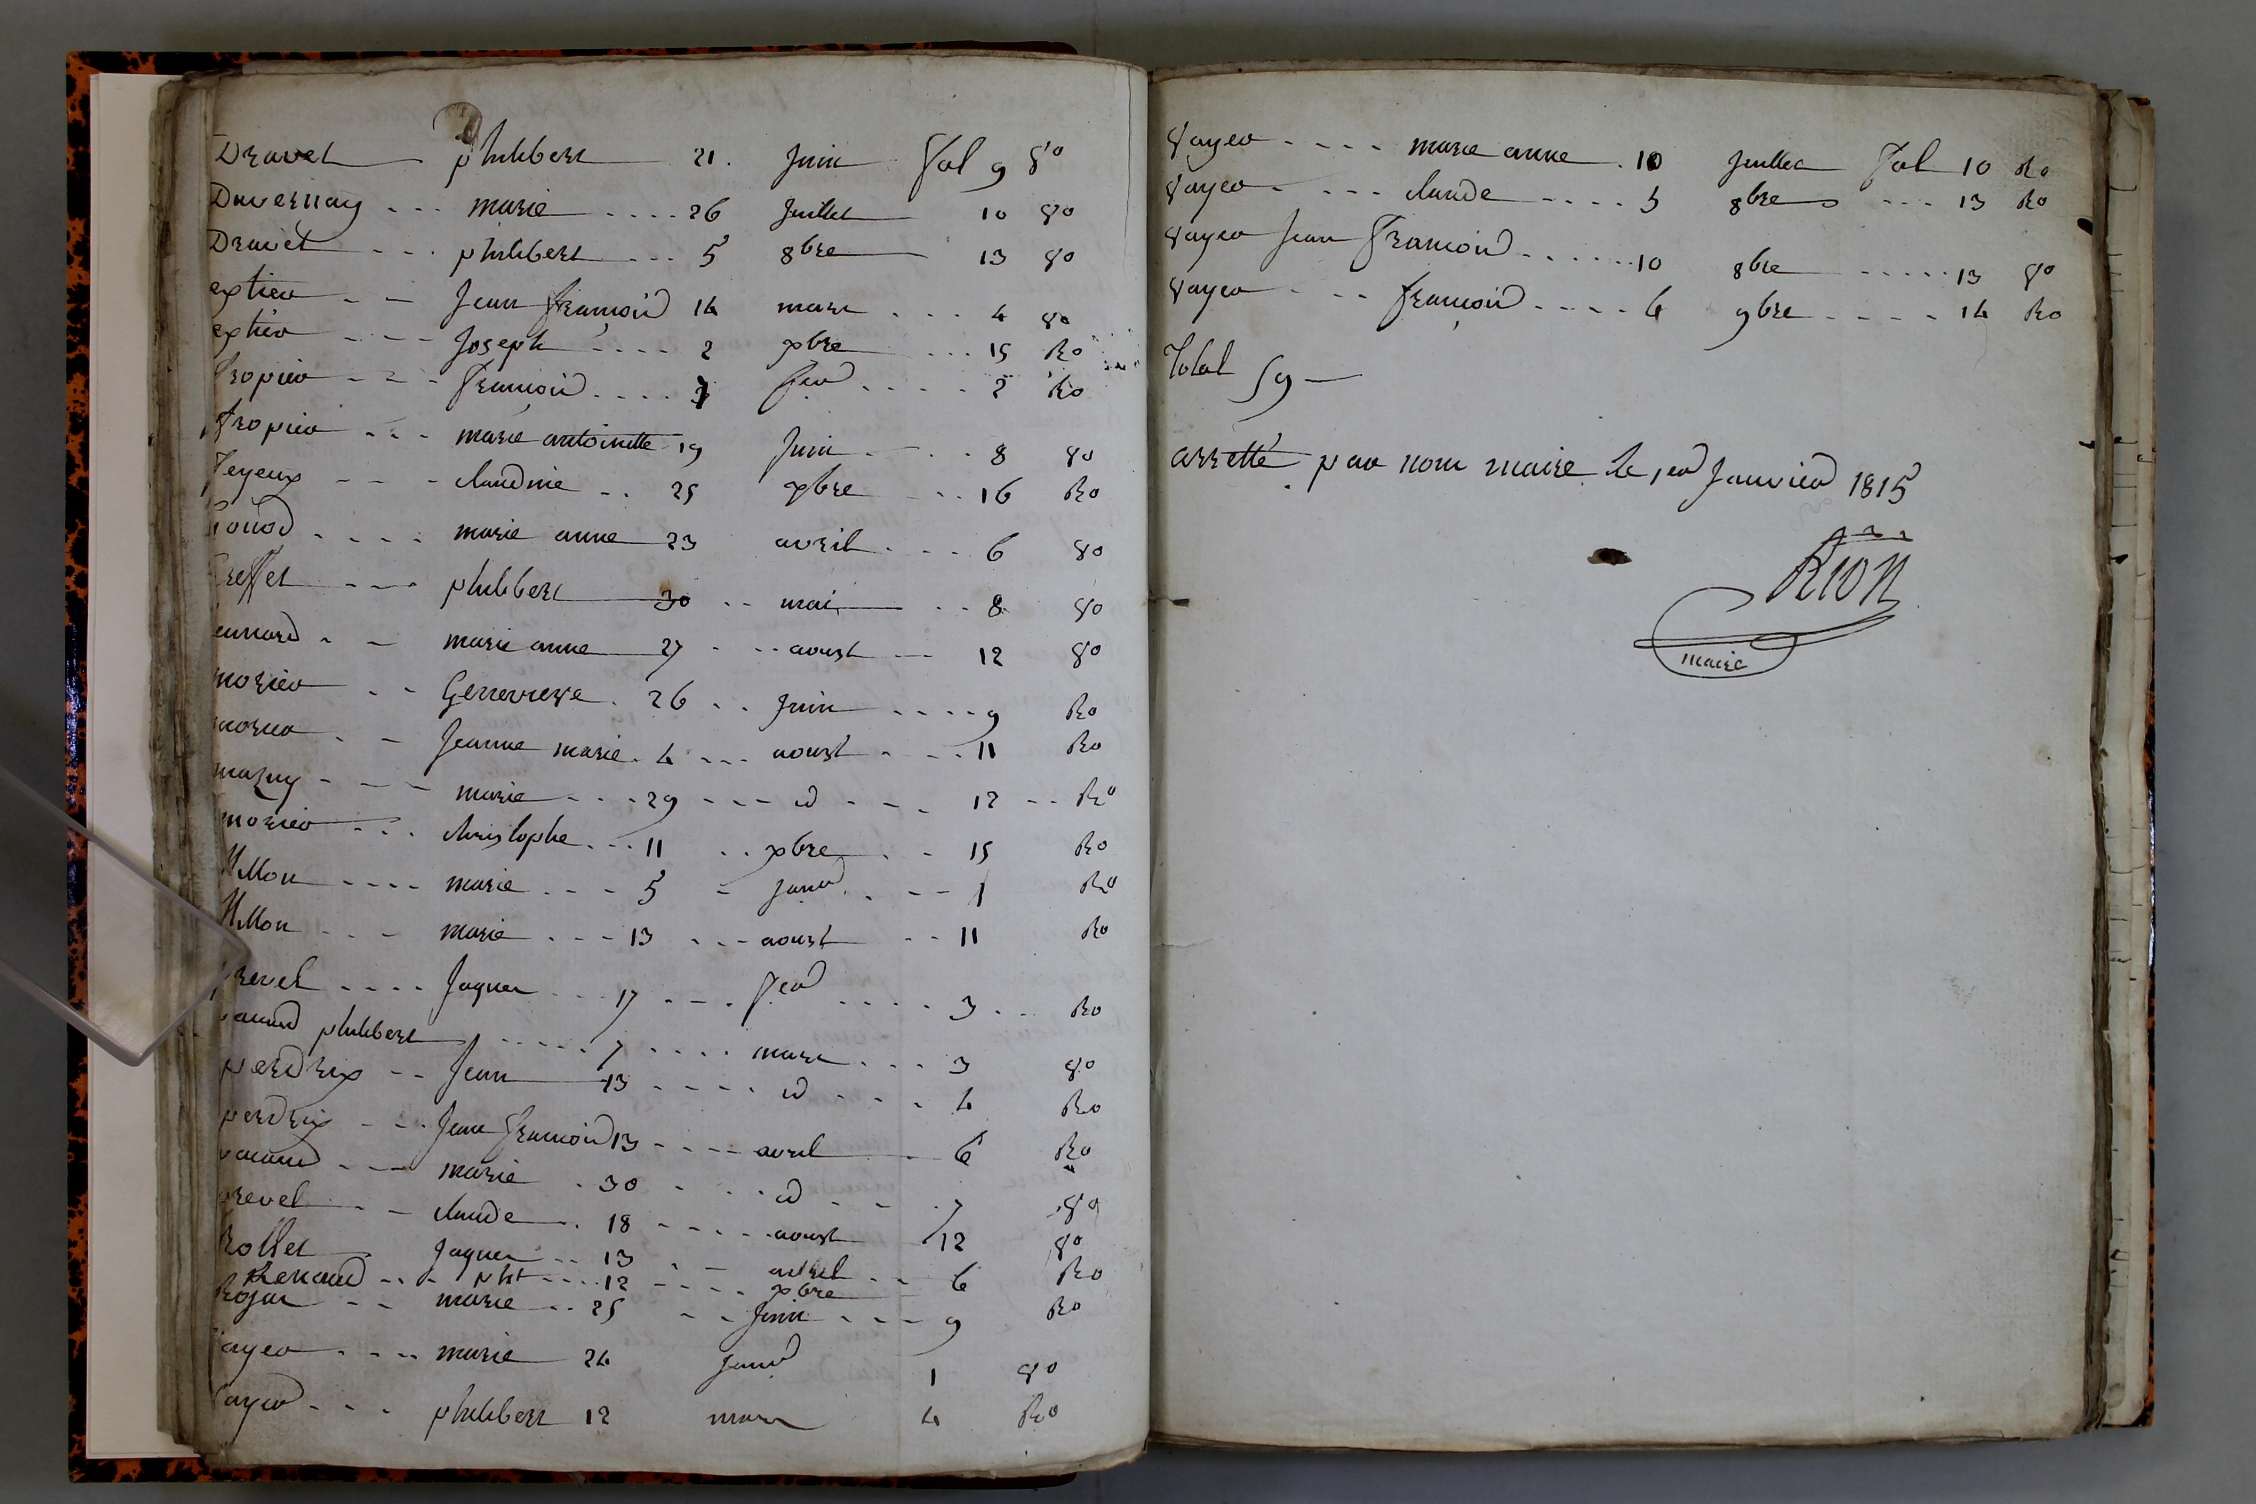 Dravet philibert 21. Juin fol 9 Vo
Duvernay ... marie .... 26 Juillet 10 Vo
Dravet ... philibert ... 5 8bre 13 Vo
extier -- Jean françois 14 mars ... 4 Vo
extier --- Joseph .... 2 xbre ... 15 Ro
françois .... 7 fer ..... 2 Ro
... marie antoinette 19 Juin .... 8 Vo
feyeux --- claudine .. 25 xbre ... 16 Ro
..... marie anne 23 avril .... 6 Vo
--- philibert 30 .. mai .. 8 Vo
-- marie anne 27 ... aoust -- 12 Vo
morier .. Genevieve . 26 .. Juin .... 9 Ro
morier . - Jeanne marie . 4 ... aoust .... 11 Ro
mazuy ---- marie ... 29 --- id .... 12 -- Ro
morier ... christophe ... 11 .. xbre .. 15 Ro
Millon .... marie ... 5 - janv. .. 1 Ro
Millon ... marie ... 13 ... aoust .. 11 Ro
prevel .... Jaques ... 17 ... fer ..... 3 .. Ro
philibert ..... 7 .... mars ... 3 Vo
perdrix -- Jean 13 ..... id .... 4 Ro
perdrix -- Jean françois 13 .... avril 6 Ro
--- marie . 30 .... id ... 7 Vo
prevel -- claude . 18 ..... aoust 12 Vo
Rollet Jaques .. 13 . - avril .. 6 Ro
Renaud ... pht .... 12 .... xbre
Rojat -- marie .. 25 -- Juin ... 9 Ro
Vayer .... marie 24 janv 1 Vo
Vayer ... philibert 12 mars 4 Ro
Vayer .... marie anne . 10 Juillet fol 10 Ro
Vayer .... claude .... 5 8bre ... 13 Ro
Vayer Jean françois ...... 10 8bre ..... 13 Vo
Vayer ... françois .... 6 9bre ..... 14 Ro
Total 59
arretté par nous maire le 1er Janvier 1815
Rion
maire